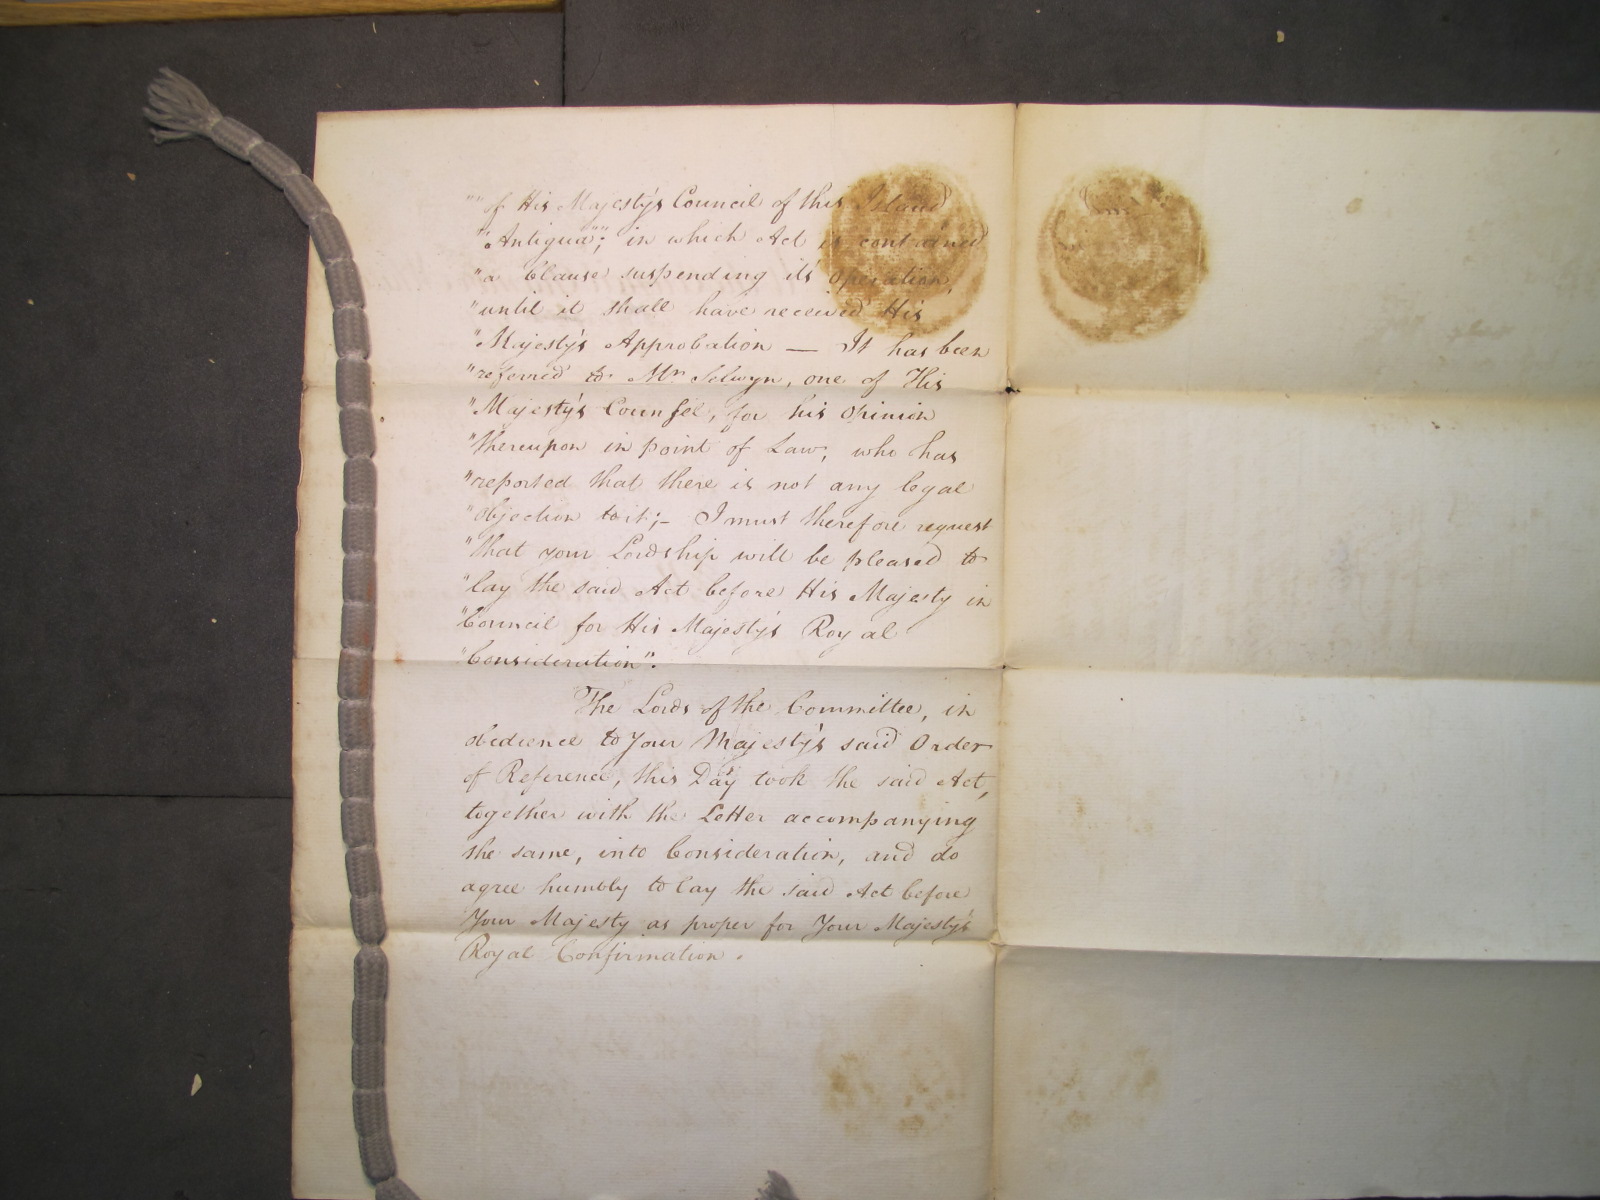 "" of His Majesty's Council of this Island
" Antigua""; in which Act is contained
" a Clause suspending its operation,
" until it shall have received His
" Majesty's Approbation — It has been
" referred to Mr Selwyn, one of His
" Majesty's Counsel, for his opinion
" thereupon in point of Law; who has
" reported that there is not any legal
" objection to it;– I must therefore request
" that your Lordship will be pleased to
" lay the said Act before His Majesty in
" Council for His Majesty's Royal
" Consideration".
The Lords of the Committee, in
obedience to Your Majesty's said Order
of Reference, this Day took the said Act,
together with the Letter accompanying
the same, into Consideration, and do
agree humbly to lay the said Act before
Your Majesty as proper for Your Majesty's
Royal Confirmation.